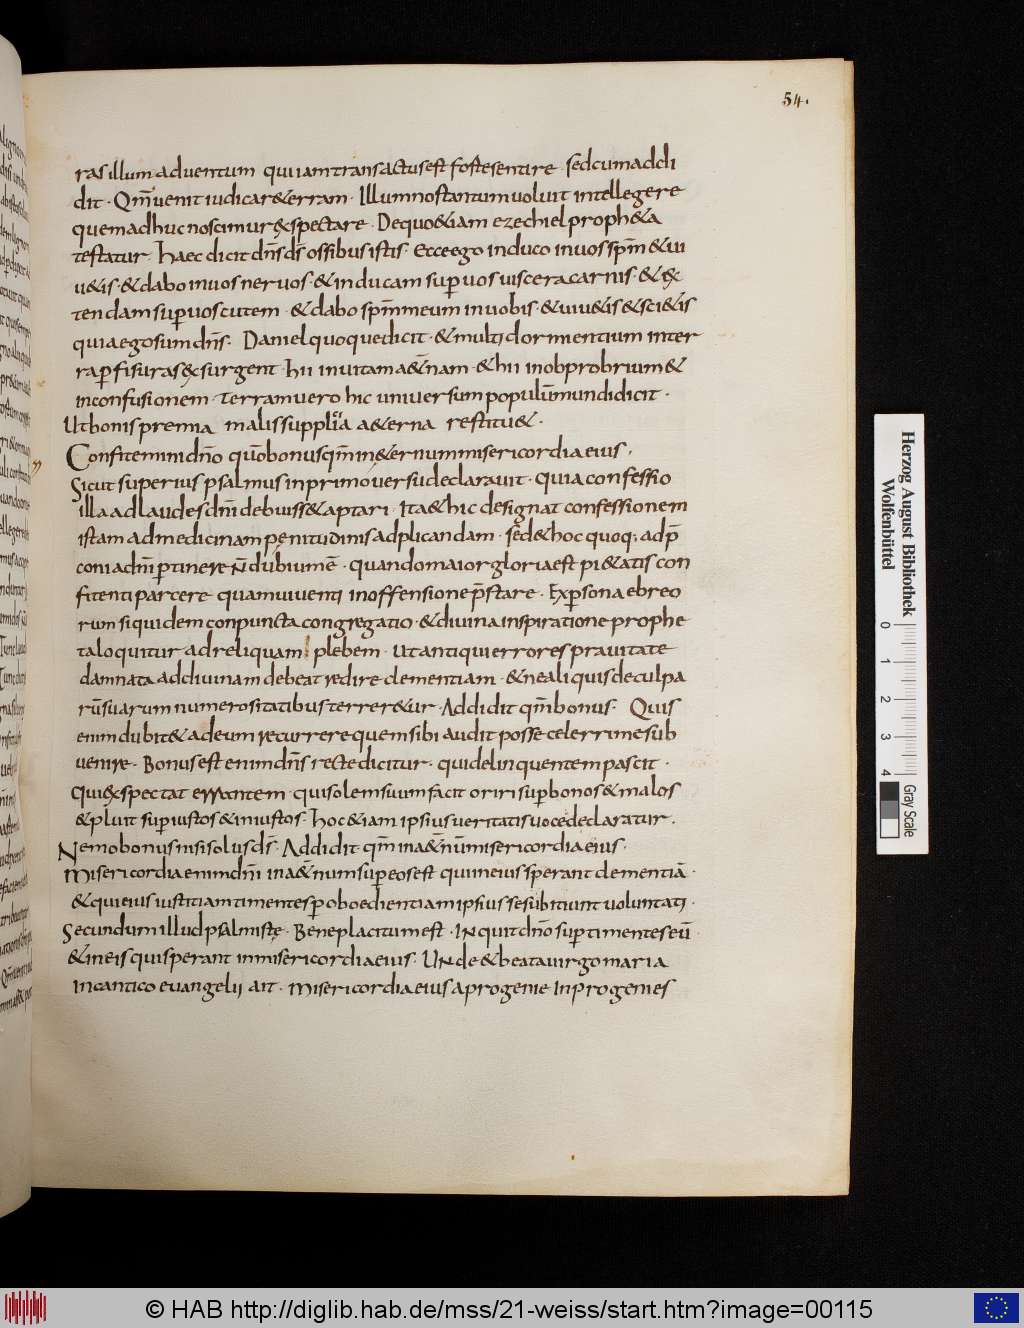 54.
ras illum adventum qui iam transactus est foste sentire · sed cum addi
dit · Qm̄ uenit iudicare &erram · Illum nos tantum uoluit intellegere
quem adhuc noscimur &xspectare · De quo &iam ezechiel proph&a
testatur · haec dicit dn̄s ds̄ ossibus istis · Ecce ego induco in uos spm̄ & ui
u&is · & dabo in uos neruos · & inducam sup uos uiscera carnis · & &x
tendam sup uos cutem · & dabo spm̄ meum in uobis · & uiu&is & sci&is
quia ego sum dn̄s · Daniel quoque dicit · & multi dormientium in ter
rap fisuras &xsurgent · hii in uitam a&n̄am · & hii in obprobrium &
in confusionem · terram uero hic uniuersum populū mundi dicit ·
Ut bonis premia malis supplicia a&erna restitu& ·
Confitemini dn̄o quō bonus qm̄ in &ernum misericordia eius ·
Sicut superius psalmus in primo uersu declarauit · quia confessio
illa ad laudes dn̄i debuiss& aptari · Ita & hic designat confessionem
istam ad medicinam penitudinis adplicandam · sed & hoc quoq; ad p̄
conia dn̄i ptinere n̄ dubium ē · quando maior gloria est pi&atis con
fitenti parcere quam uiuenti in offensione p̄stare · Ex psona ebreo
rum siquidem conpuncta congregatio · & diuina inspiratione prophe
ta loquitur ad reliquam plebem · ut antiqui erroris prauitate
damnata ad diuinam debeat redire clementiam · & ne aliquis de culpa
rū suarum numerositatibus terrer&ur · Addidit qm̄ bonus · Quis
enim dubit& ad eum recurrere quem sibi audit posse celerrime sub
uenire · Bonus est enim dn̄s recte dicitur · qui delinquentem pascit ·
qui &xspectat errantem · qui solem suum facit oriri sup bonos & malos
& pluit sup iustos & iniustos · hoc &iam ipsius ueritatis uoce declaratur ·
Nemo bonus nisi solus ds̄ · Addidit qm̄ in a&n̄um misericordia eius ·
Misericordia enim dn̄i in a&n̄um super eos est qui in eius sperant clementiā ·
& qui eius iustitiam timentes p oboedientiam ipsius se subitiunt uoluntati ·
Secundum illud psalmistę · Beneplacitum est · INquit dn̄o sup timentes eū ·
& in eis qui sperant in misericordia eius · UNde & beata uirgo maria
in cantico euangelii ait · misericordia eius a progenie in progenies
Herzog August Bibliothek
Wolfenbüttel
0 1 2 3 4
Gray Scale
© HAB http://diglib.hab.de/mss/21-weiss/start.htm?image=00115